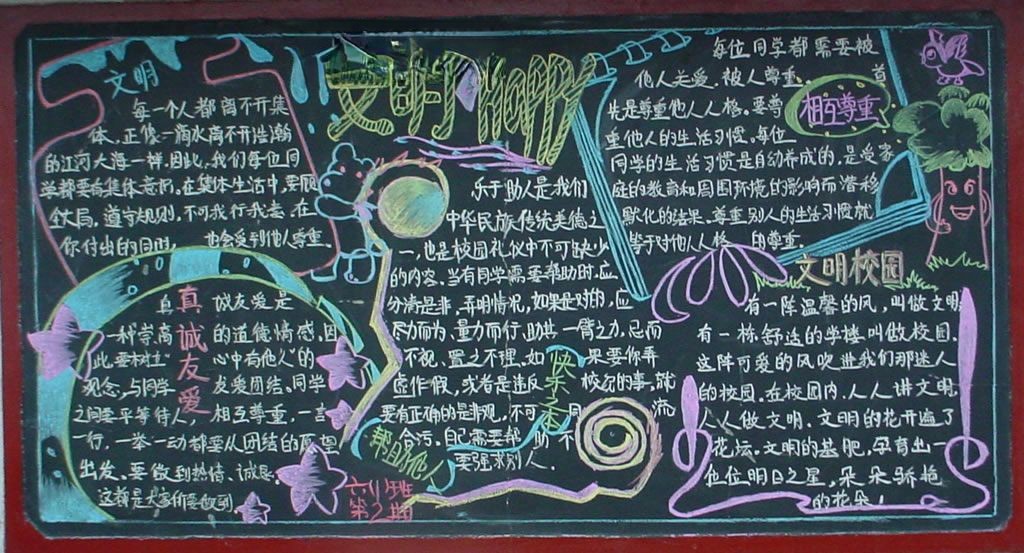 文明
每一个人都离不开集
体,正像一滴水离不开浩瀚
的江河大海一样,因此,我们每位同
学都要有集体意识。在集体生活中,要顾
全大局,遵守规则,不可我行我素,在
你付出的同时,也会受到他人尊重。
真诚友爱
真诚友爱是
一种崇高的道德情感,因
此,要树立“心中有他人”的
观念,与同学友爱团结、同学
之间要平等待人,相互尊重,一言
一行,一举一动都要从团结的愿望
出发。要做到热情、诚恳。
这都是大家们要做到
六(1)班
第2期
文明 happy
乐于助人是我们
中华民族传统美德之
一,也是校园礼仪中不可缺少
的内容。当有同学需要帮助时,应
分清是非,弄明情况,如果是对的,应
尽力而为,量力而行,助其一臂之力,忌而
不视、置之不理,如果要你弄
虚作假,或者是违反校规的事,就
要有正确的是非观,不可同流
合污。自己需要帮助不
要强求别人。
快乐之本
帮助他人
每位同学都需要被
他人关爱,被人尊重。首
先是尊重他人人格。要尊
重他人的生活习惯。每位
同学的生活习惯是自动养成的,是受家
庭的教育和周围环境的影响而潜移
默化的结果。尊重别人的生活习惯就
等于对他人人格的尊重。
相互尊重
文明校园
有一阵温馨的风,叫做文明,
有一栋舒适的学楼,叫做校园。
这阵可爱的风吹进我们那迷人
的校园。在校园内,人人讲文明,
人人做文明。文明的花开遍了
花坛。文明的基肥,孕育出一
位位明日之星,朵朵骄艳
的花朵!